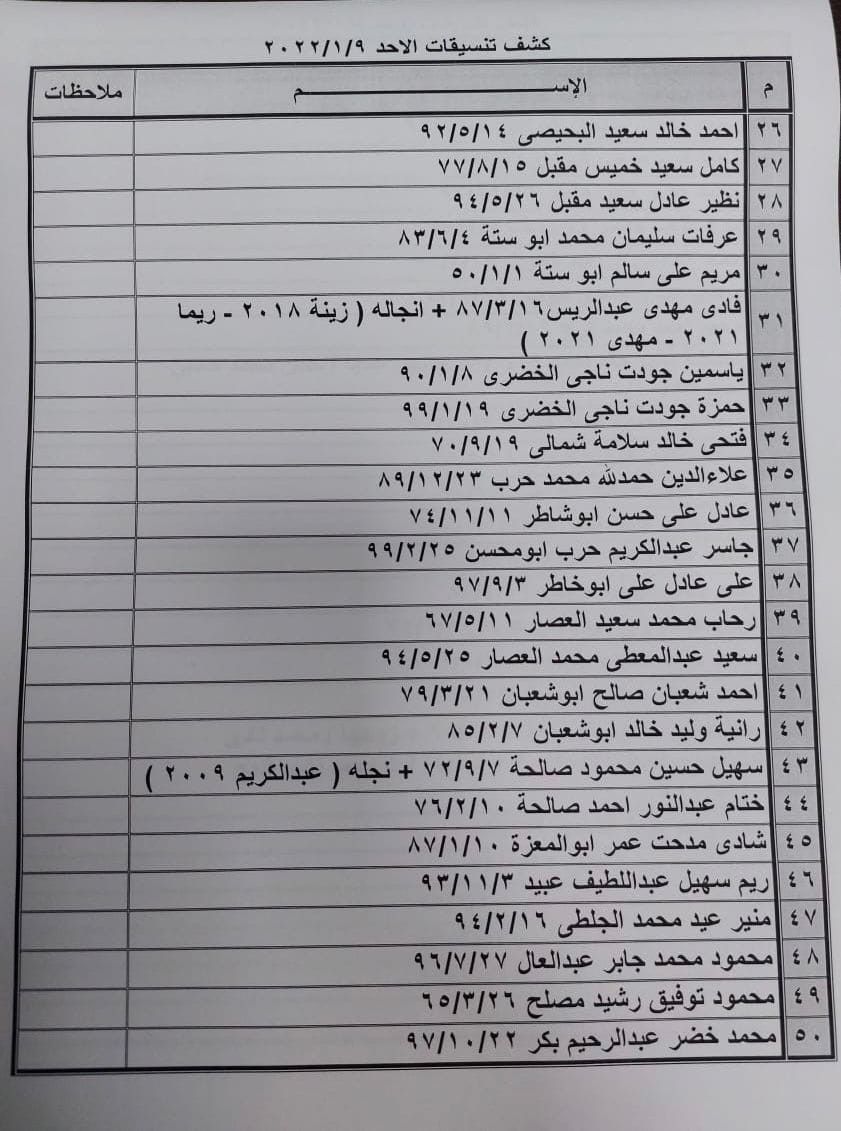 كشف تنسيقات الاحد ٢٠٢٢/١/٩
م الإســـــــم ملاحظات
٢٦ احمد خالد سعيد البحيصى ٩٢/٥/١٤
٢٧ كامل سعيد خميس مقبل ٧٧/٨/١٥
٢٨ نظير عادل سعيد مقبل ٩٤/٥/٢٦
٢٩ عرفات سليمان محمد ابو ستة ٨٣/٦/٤
٣٠ مريم على سالم ابو ستة ٥٠/١/١
٣١ فادى مهدى عبدالريس ٨٧/٣/١٦ + انجاله ( زينة ٢٠١٨ - ريما
٢٠٢١ - مهدى ٢٠٢١ )
٣٢ ياسمين جودت ناجى الخضرى ٩٠/١/٨
٣٣ حمزة جودت ناجى الخضرى ٩٩/١/١٩
٣٤ فتحى خالد سلامة شمالى ٧٠/٩/١٩
٣٥ علاءالدين حمدلله محمد حرب ٨٩/١٢/٢٣
٣٦ عادل على حسن ابوشاطر ٧٤/١١/١١
٣٧ جاسر عبدالكريم حرب ابومحسن ٩٩/٢/٢٥
٣٨ على عادل على ابوخاطر ٩٧/٩/٣
٣٩ رحاب محمد سعيد العصار ٦٧/٥/١١
٤٠ سعيد عبدالمعطى محمد العصار ٩٤/٥/٢٥
٤١ احمد شعبان صالح ابوشعبان ٧٩/٣/٢١
٤٢ رانية وليد خالد ابوشعبان ٨٥/٢/٧
٤٣ سهيل حسين محمود صالحة ٧٢/٩/٧ + نجله ( عبدالكريم ٢٠٠٩ )
٤٤ ختام عبدالنور احمد صالحة ٧٦/٢/١٠
٤٥ شادى مدحت عمر ابوالمعزة ٨٧/١/١٠
٤٦ ريم سهيل عبداللطيف عبيد ٩٣/١١/٣
٤٧ منير عيد محمد الجلطى ٩٤/٢/١٦
٤٨ محمود محمد جابر عبدالعال ٩٦/٧/٢٧
٤٩ محمود توفيق رشيد مصلح ٦٥/٣/٢٦
٥٠ محمد خضر عبدالرحيم بكر ٩٧/١٠/٢٢